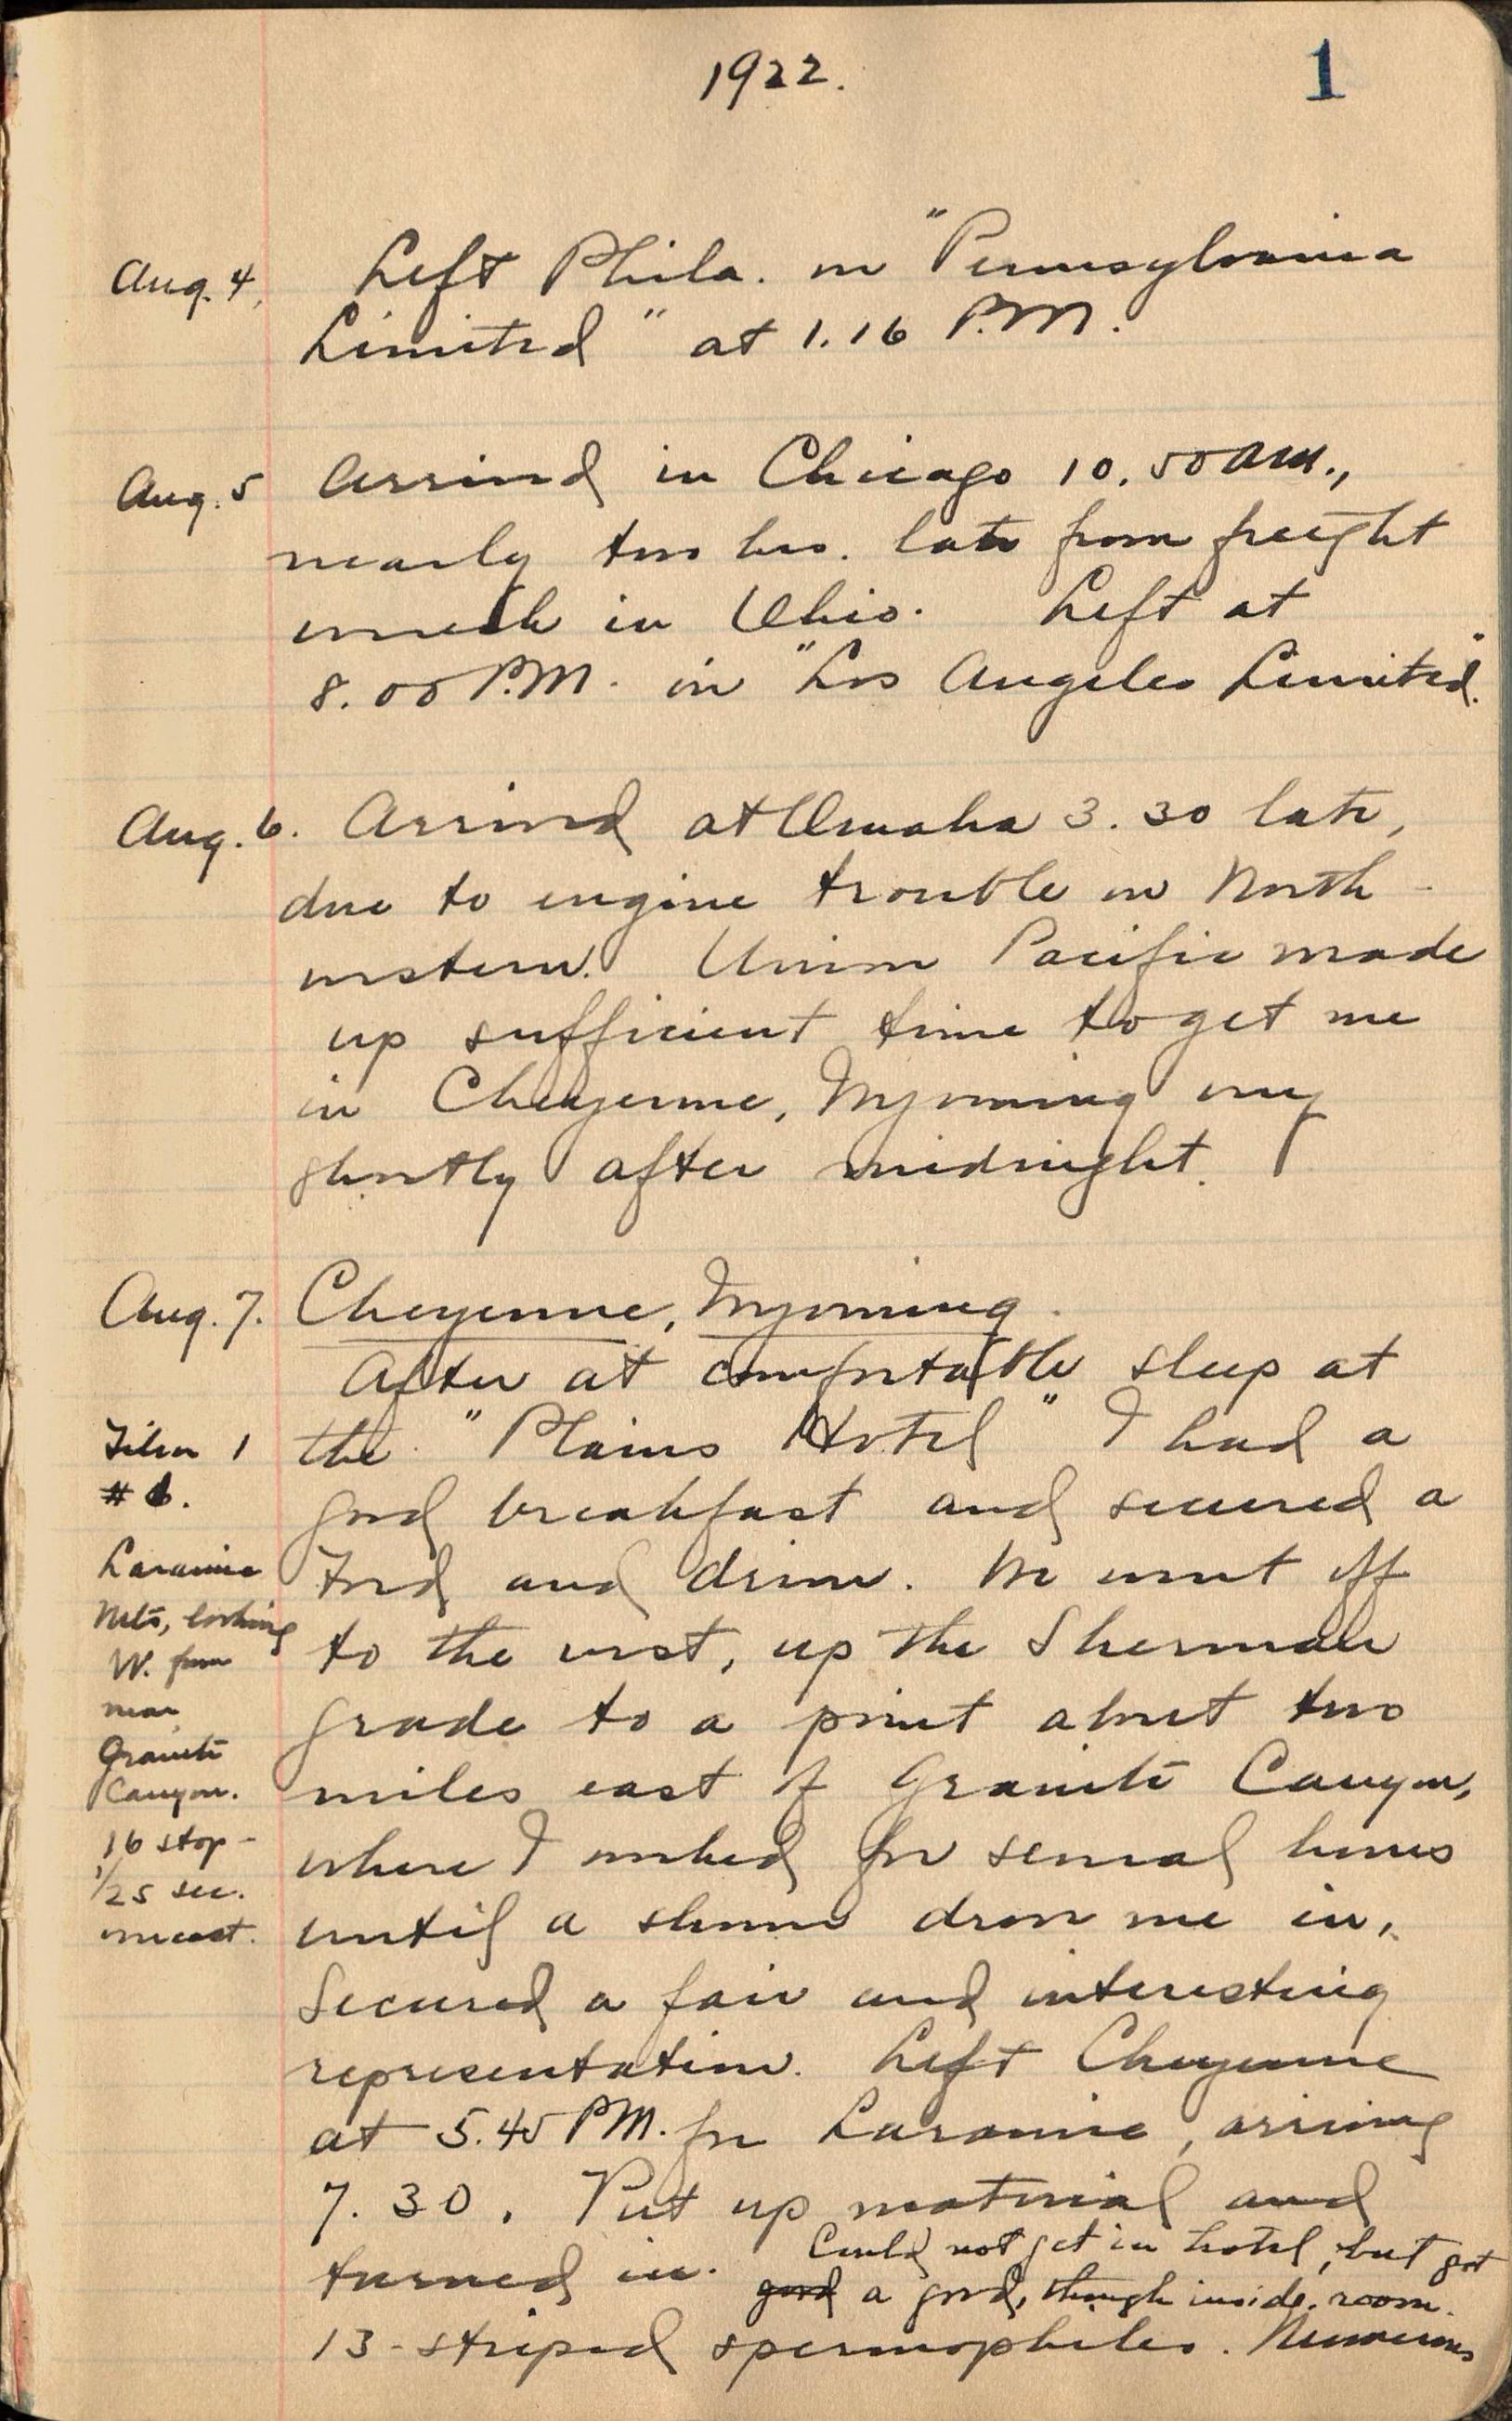 1922.
1
Aug. 4, Left Phila. on "Pennsylvania
Limited" at 1.16 P.M.
Aug. 5 Arrived in Chicago 10.50 AM.,
nearly two hrs. late from freight
wreck in Ohio. Left at
8.00 P.M. in "Los Angeles Limited".
Aug. 6. Arrived at Omaha 3.30 late,
due to engine trouble on North-
western. Union Pacific made
up sufficient time to get me
in Cheyenne, Wyoming very
shortly after midnight.
Aug. 7. Cheyenne, Wyoming.
After at comfortable sleep at
the "Plains Hotel" I had a
good breakfast and secured a
Ford and driver. We went off
to the west, up the Sherman
grade to a point about two
miles east of Granite Canyon,
where I worked for several hours
until a shower drove me in.
Secured a fair and interesting
representation. Left Cheyenne
at 5.45 PM. for Laramie, arriving
7.30. Put up material and
turned in. Could not get in hotel, but got
good a good, though inside, room.
13-striped spermophiles. Numerous
Film 1
# 1.
Laramie
Mts, looking
W. from
near
Granite
Canyon.
16 stop -
1/25 sec.
overcast.